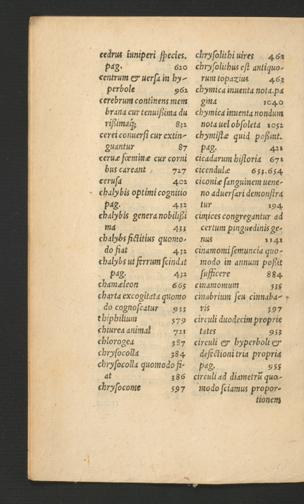 cedrus iuniperi ſpecies.
pag. 620
centrum & uerſa in hy-
perbole 962
cerebrum continens mem
brana cur tenuiſsima du
riſsimaq́; 812
cerei conuerſi cur extin-
guantur 87
ceruæ fœminæ cur corni
bus careant 727
ceruſa 402
chalybis optimi cognitio
pag. 432
chalybis genera nobiliſsi
ma 433
chalybs fictitius quomo-
do fiat 432
chalybs ut ferrum ſcindat
pag. 432
chamæleon 665
charta excogitata quomo
do cognoſcatur 933
thiphilium 579
chiurea animal 721
chlorogea 387
chryſocolla 384
chryſocolla quomodo fi-
at 386
chryſocome 597
chryſolithi uires 462
chryſolithus eſt antiquo-
rum topazius 463
chymica inuenta nota.pa
gina 1040
chymica inuenta nondum
nota uel obſoleta 1052
chymiſtæ quid poſsint.
pag. 421
cicadarum hiſtoria 671
cicendulæ 653.654
ciconiæ ſanguinem uene-
no aduerſari demonſtra
tur 194
cimices congregantur ad
certum pinguedinis ge-
nus 1142
cinamomi ſemuncia quo-
modo in annum poſsit
ſufficere 884
cinamomum 535
cinabrium ſeu cinnaba-
ris 397
circuli duodecim proprie
tates 953
circuli & hyperboli &
defictioni tria propria
pag. 955
circuli ad diametrũ quo-
modo ſciamus propor-
tionem